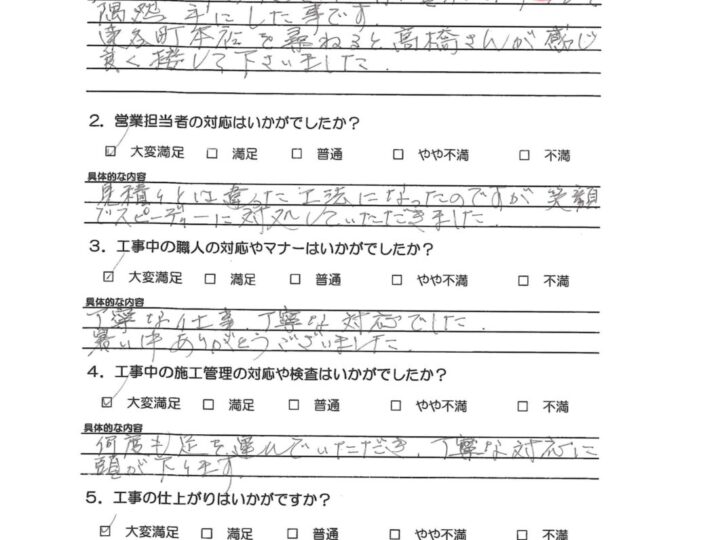 隅然手にした事です.
本店を尋ねると高橋さんが感じ
良く接して下さいました.
2. 営業担当者の対応はいかがでしたか？
☑ 大変満足 □ 満足 □ 普通 □ やや不満 □ 不満
具体的な内容
見積りとは違った工法になったのですが笑顔
でスピーディーに対処していただきました.
3. 工事中の職人の対応やマナーはいかがでしたか？
☑ 大変満足 □ 満足 □ 普通 □ やや不満 □ 不満
具体的な内容
丁寧な仕事、丁寧な対応でした.
暑い中ありがとうございました.
4. 工事中の施工管理の対応や検査はいかがでしたか？
☑ 大変満足 □ 満足 □ 普通 □ やや不満 □ 不満
具体的な内容
何度も足を運んでいただき、丁寧な対応に
頭が下ります.
5. 工事の仕上がりはいかがですか？
☑ 大変満足 □ 満足 □ 普通 □ やや不満 □ 不満